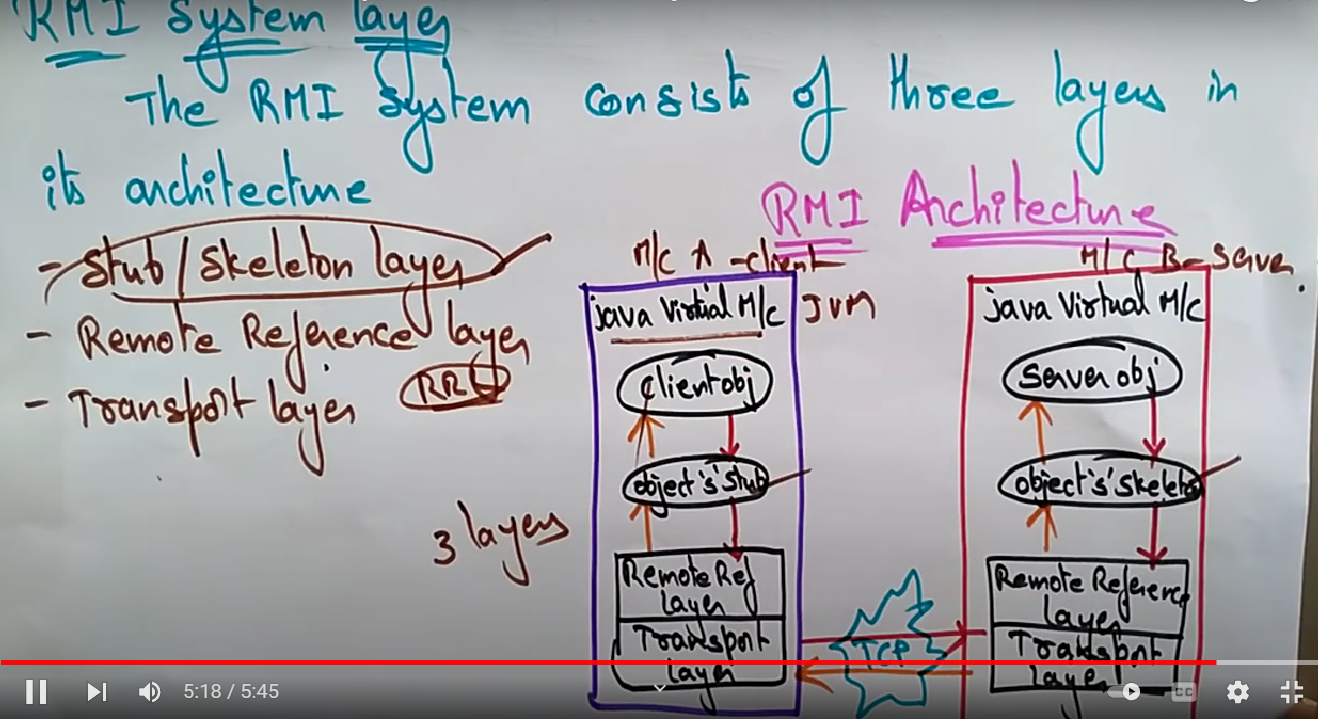 RMI System layer
The RMI System consists of three layers in
its architecture
- Stub / Skeleton layer
- Remote Reference layer
RRL
- Transport layer
3 layers
RMI Architecture
M/C A - client
java Virtual M/c JVM
client obj
object 's' stub
Remote Ref
Layer
Transport
layer
TCP
M/C B - Server
java Virtual M/C
Server obj
object 's' skeleton
Remote Reference
layer
Transport
layer
5:18 / 5:45
CC